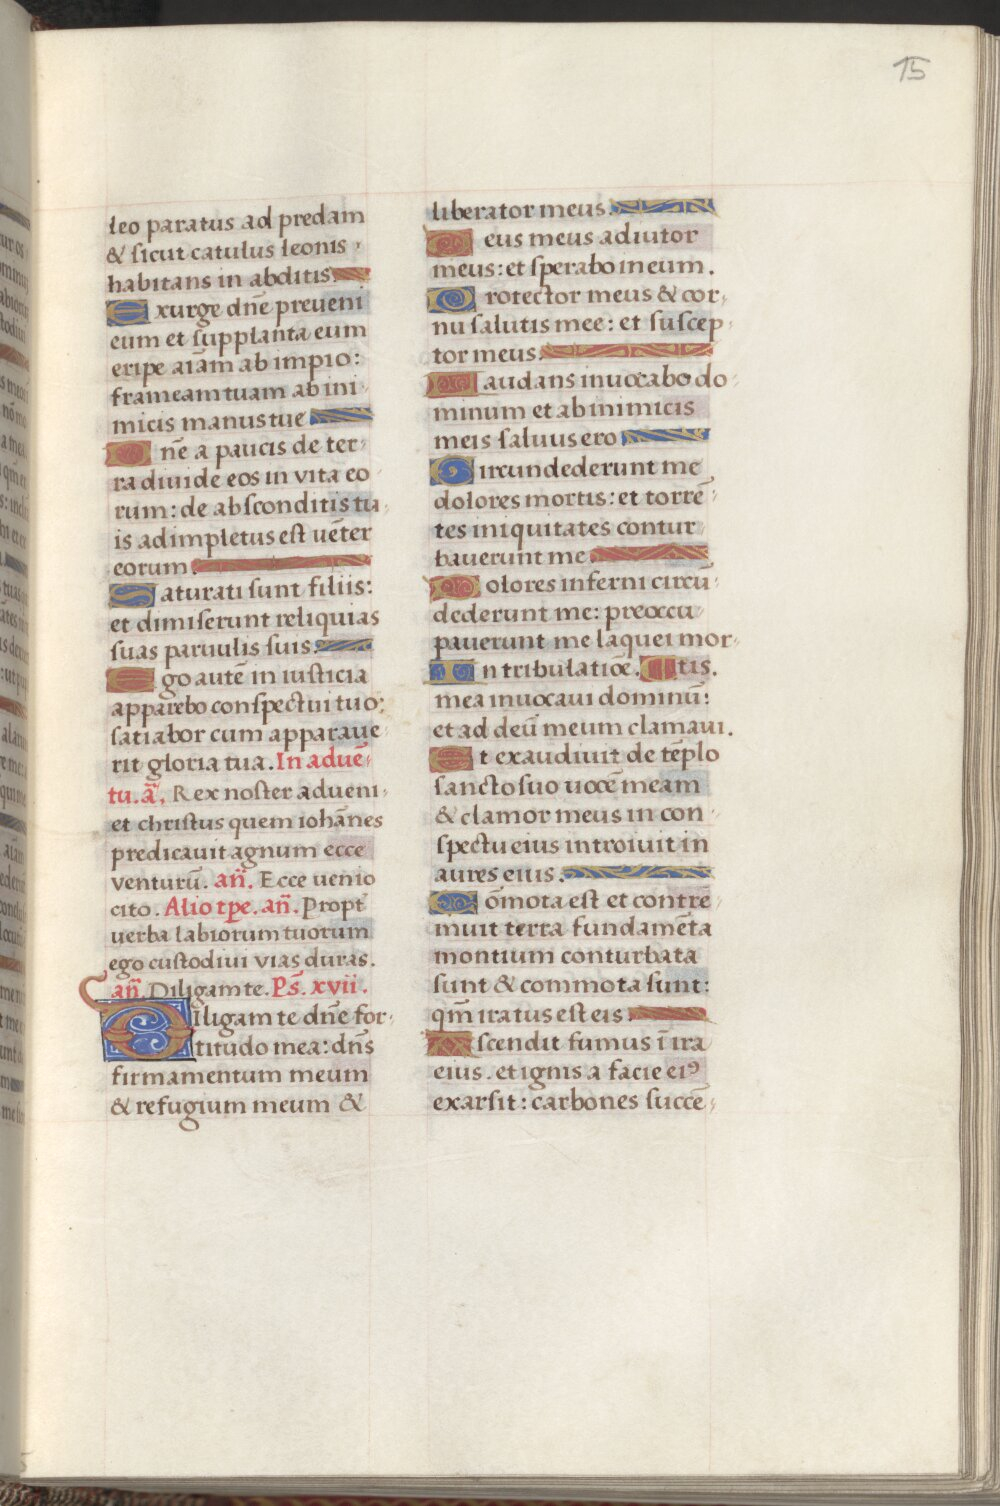 15
leo paratus ad predam
& sicut catulus leonis
habitans in abditis.
Exurge dn̄e preueni
eum et supplanta eum
eripe aīam ab impio:
frameam tuam ab ini
micis manus tue
Dn̄e a paucis de ter
ra diuide eos in vita eo
rum: de absconditis tu
is adimpletus est uēter
eorum.
Saturati sunt filiis:
et dimiserunt reliquias
suas paruulis suis.
Ego autē in iusticia
apparebo conspectui tuo:
satiabor cum apparaue
rit gloria tua. In aduē
tu. a͞. Rex noster adueni
et christus quem iohānes
predicauit agnum ecce
venturū. an̄. Ecce uenio
cito. Alio tp̄e. an̄. Propt̄
uerba labiorum tuorum
ego custodiui vias duras.
an̄. Diligam te. Ps̄. xvii.
Diligam te dn̄e for
titudo mea: dn̄s
firmamentum meum
& refugium meum &
liberator meus.
Deus meus adiutor
meus: et sperabo in eum.
Protector meus & cor
nu salutis mee: et suscep
tor meus.
Laudans inuocabo do
minum et ab inimicis
meis saluus ero
Circundederunt me
dolores mortis: et torrē
tes iniquitates contur
bauerunt me
Dolores inferni circū
dederunt me: preoccu
pauerunt me laquei mor
In tribulatiōe. tis.
mea inuocaui dominū:
et ad deū meum clamaui.
Et exaudiuit de tēplo
sancto suo uocē meam
& clamor meus in con
spectu eius introiuit in
aures eius.
Cōmota est et contrē
muit terra fundamēta
montium conturbata
sunt & commota sunt:
qm̄ iratus est eis.
Ascendit fumus ī ira
eius. et ignis a facie eiꝰ
exarsit: carbones succē